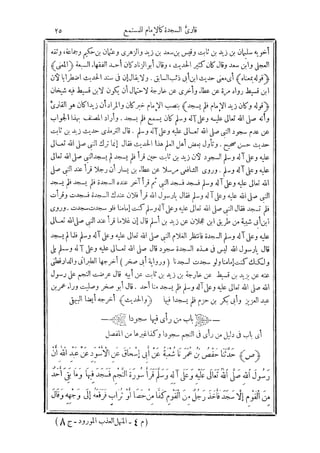 قارئ السجدة كالإمام للمستمع ٢٥
أخويه سليمان بن زيد بن ثابت وقيس بن سعد بن زيد والزهري وعثمان بن حكيم وجماعة، وثقه
العجلي وابن سعد وقال كان كثير الحديث، وقال أبو الزناد كان أحد الفقهاء السبعة ﴿المعنى﴾
﴿قوله بمعناه﴾ أي معنى حديث ابن أبي ذئب السابق. ولا يقال إن في سند الحديث اضطرابا لأن
ابن قسيط رواه مرة عن عطاء وأخرى عن خارجة لاحتمال أن يكون لابن قسيط فيه شيخان
﴿قوله وكان زيد الإمام فلم يسجد﴾ بنصب الإمام خبر كان والمراد أن زيدا كان هو القارئ
وأنه صلى الله تعالى عليه وعلى آله وسلم كان يسمع فلم يسجد. وأراد المصنف بهذا الجواب
عن عدم سجود النبي صلى الله تعالى عليه وعلى آله وسلم. قال الترمذي حديث زيد بن ثابت
حديث حسن صحيح. وتأول بعض أهل العلم هذا الحديث فقال إنما ترك النبي صلى الله تعالى
عليه وعلى آله وسلم السجود لأن زيد بن ثابت حين قرأ فلم يسجد لم يسجد النبي صلى الله تعالى
عليه وعلى آله وسلم. وروى الشافعي مرسلا عن عطاء بن يسار أن رجلا قرأ عند النبي صلى
الله تعالى عليه وعلى آله وسلم فسجد فسجد النبي ثم قرأ آخر عنده السجدة فلم يسجد فلم يسجد
النبي صلى الله عليه وعلى آله وسلم فقال يارسول الله قرأ فلان عندك السجدة فسجدت وقرأت
فلم تسجد فقال النبي صلى الله تعالى عليه وعلى آله وسلم كنت إماما فلو سجدت سجدت. وروى
ابن أبي شيبة من طريق ابن عجلان عن زيد بن أسلم قال إن غلاما قرأ عند النبي صلى الله تعالى
عليه وعلى آله وسلم السجدة فانتظر الغلام النبي صلى الله تعالى عليه وعلى آله وسلم فلما لم يسجد
قال يارسول الله ليس في هذه السجدة سجود قال صلى الله تعالى عليه وعلى آله وسلم بلى
ولكنك كنت إمامنا ولو سجدت لسجدنا ﴿ورواية أبي صخر﴾ أخرجها الطبراني والدارقطني
عنه عن يزيد بن قسيط عن خارجة بن زيد بن ثابت عن أبيه قال عرضت النجم على رسول
الله صلى الله تعالى عليه وعلى آله وسلم فلم يسجد منا أحد. قال أبو صخر وصليت وراء عمر بن
عبد العزيز وأبي بكر بن حزم فلم يسجدا فيها ﴿والحديث﴾ أخرجه أيضا البيهقي
باب من رأى فيها سجودا
أي باب في دليل من رأى في النجم سجودا وكذا غيرها من المفصل
﴿ص﴾ حَدَّثَنَا حَفْصُ بْنُ عُمَرَ نَا شُعْبَةُ عَنْ أَبِي إِسْحَاقَ عَنِ الْأَسْوَدِ عَنْ عَبْدِ اللهِ أَنَّ
رَسُولَ اللهِ صَلَّى اللهُ تَعَالَى عَلَيْهِ وَعَلَى آلِهِ وَسَلَّمَ قَرَأَ سُورَةَ النَّجْمِ فَسَجَدَ فِيهَا وَمَا بَقِيَ أَحَدٌ
مِنَ الْقَوْمِ إِلَّا سَجَدَ فَأَخَذَ رَجُلٌ مِنَ الْقَوْمِ كَفًّا مِنْ حَصًا أَوْ تُرَابٍ فَرَفَعَهُ إِلَى وَجْهِهِ وَقَالَ
(م ٤ - المنهل العذب المورود - ج ٨)